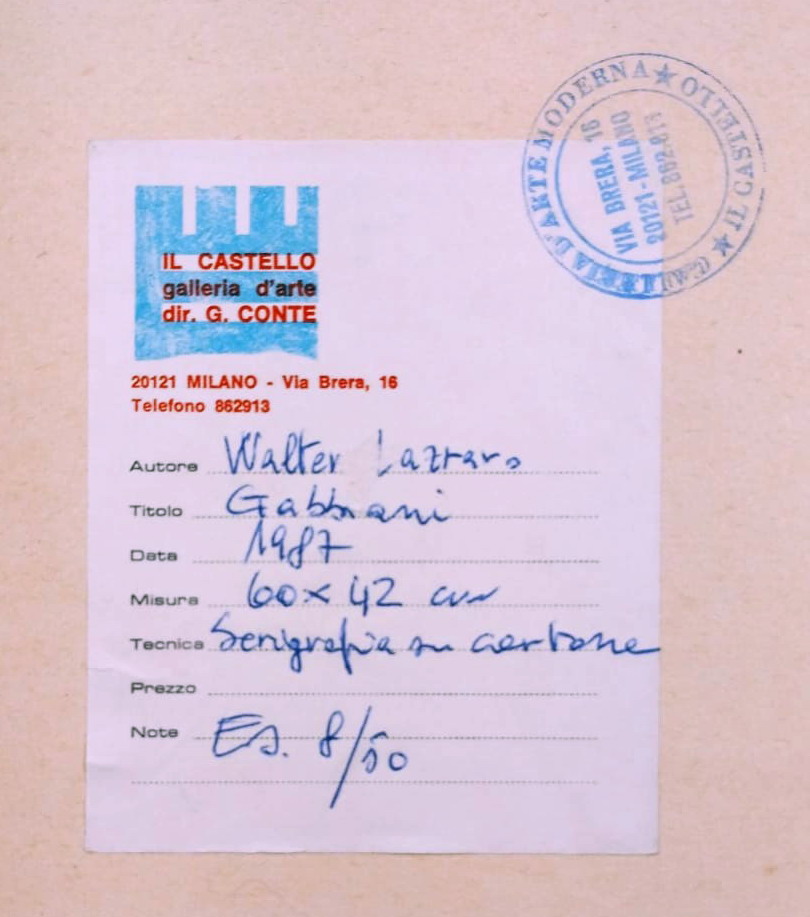 IL CASTELLO
galleria d'arte
dir. G. CONTE
20121 MILANO - Via Brera, 16
Telefono 862913
GALLERIA D'ARTE MODERNA ★ IL CASTELLO ★
VIA BRERA, 16
20121-MILANO
TEL.
Autore Walter Lazzaro
Titolo Gabbiani
Data 1987
Misura 60 x 42 cm
Tecnica Serigrafia su cartone
Prezzo
Note Es. 8/50